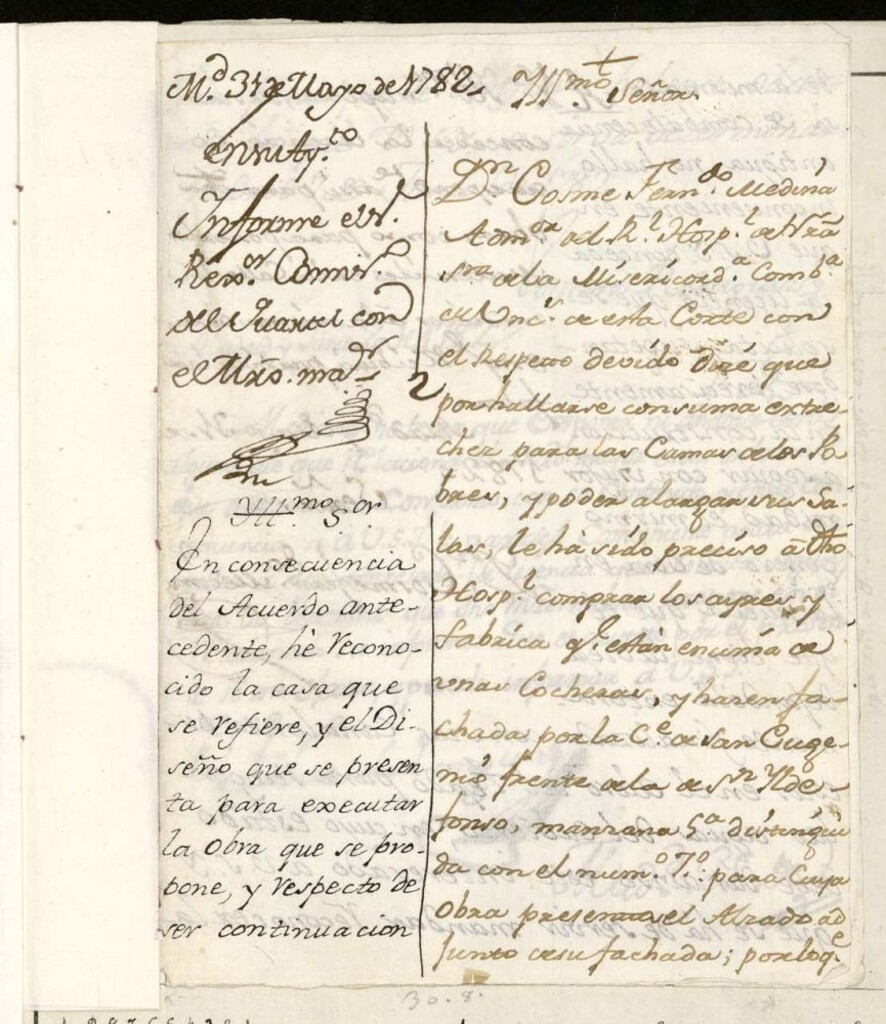 M.d 31 de Mayo de 1782
en su Ay.to
Informe el S.r
Rex.or Comis.o
del Quartel con
el Mro. ma.r
Yll.mo S.or
En consecuencia
del Acuerdo ante-
cedente, hè recono-
cido la casa que
se refiere, y el Di-
seño que se presen
ta para executar
la obra que se pro-
pone, y respecto de
ser continuacion
Yll.mo Señor
D.n Cosme Fern.do Medina
Adm.or del R.l Hosp.l de Nrã
Srã de la Misericord.a Comb.a
de esta Corte con
el Respecto devído Dize que
por hallarse con suma extre-
chez para las Camas de los Po
bres, y poder alargar sus Sa-
las, le há sído precíso a dho
Hosp.l comprar los ayres y
fabrica q.e están encíma de
unas Cocheras, y hazen fa-
chada por la C.e de San Euge-
nío frente de la de S.n Ylde-
fonso, manzana 5.a distinguí
da con el num.o 7.o: para Cuya
obra presenta el Alzado ad
junto de su fachada; por lo q.e
30.8.